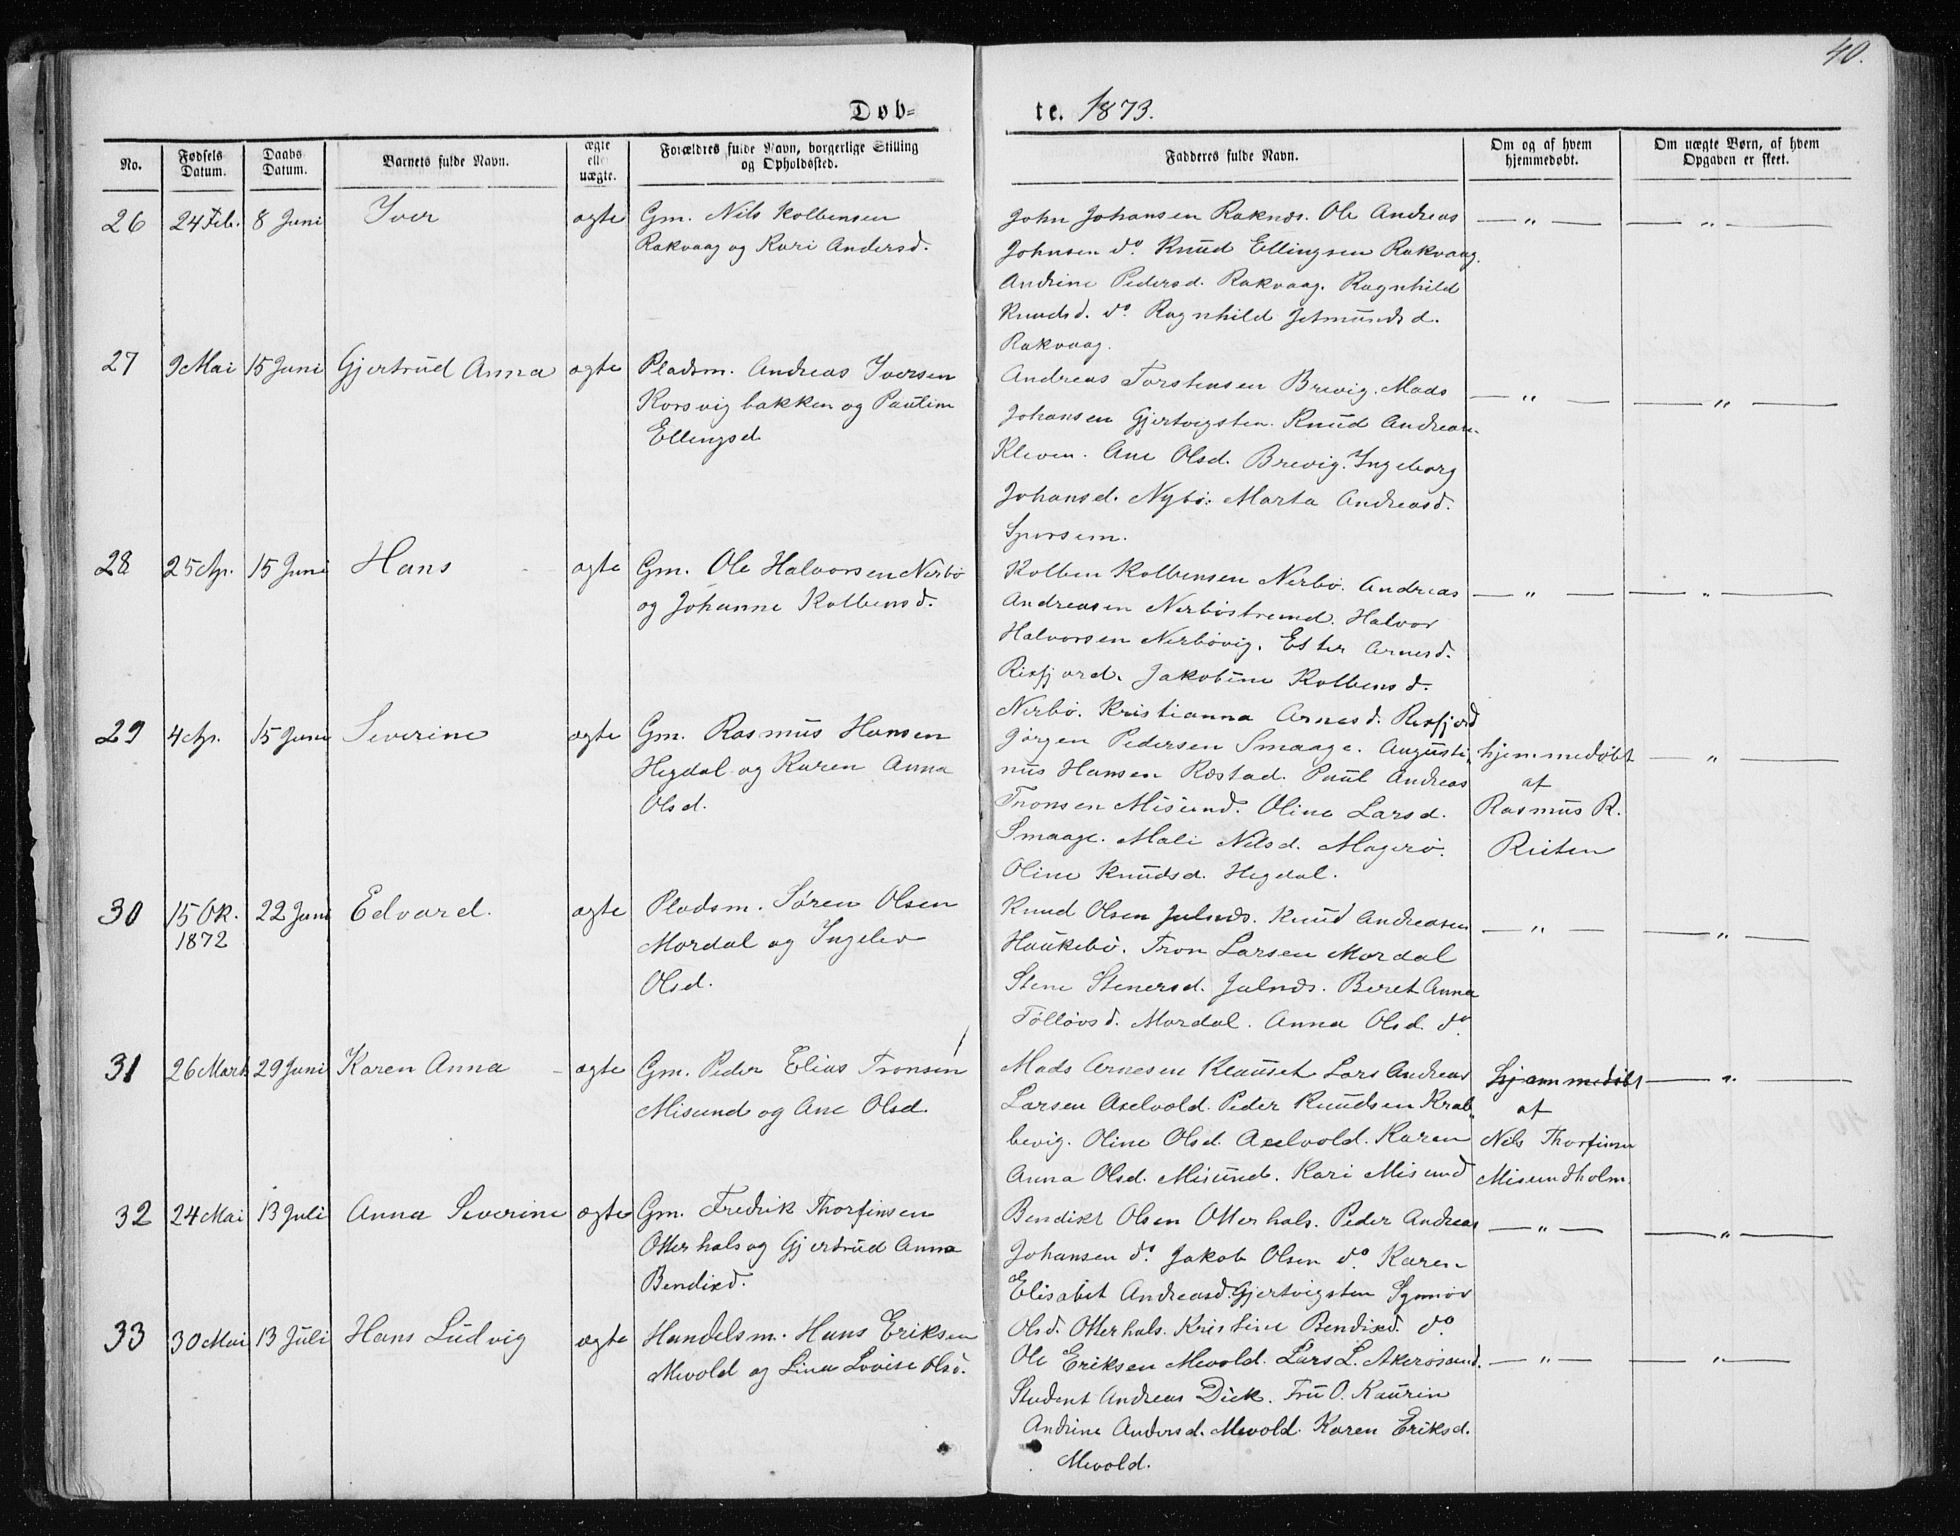 40.
Døb=
te. 1873.
No.
Fødsels Datum.
Daabs Datum.
Barnets fulde Navn.
ægte eller uægte.
Forældres fulde Navn, borgerlige Stilling og Opholdssted.
Fadderes fulde Navn.
Om og af hvem hjemmedøbt.
Om uægte Børn, af hvem Opgaven er skeet.
26 24 Feb. 8 Juni Iver ægte Gm. Nils Kolbensen
Rakvaag og Kari Andersd.
John Johansen Raknæs. Ole Andreas — " — — " —
Johnsen do. Knud Ellingsen Rakvaag.
Andrine Pedersd. Rakvaag. Ragnhild
Knudsd. do. Ragnhild Jetmundsd.
Rakvaag.
27 9 Mai 15 Juni Gjertrud Anna ægte Pladsm. Andreas Iversen
Korsvigbakken og Pauline
Ellingsd
Andreas Torstensen Brevig. Mads — " — — " —
Johansen Gjertvigsten. Knud Andreas-
Kleven. Ane Olsd. Brevig. Ingeborg
Johansd. Nybø. Marta Andreasd.
Spersem.
28 25 Ap. 15 Juni Hans ægte Gm. Ole Halvorsen Nerbø
og Johanne Kolbensd.
Kolben Kolbensen Nerbø. Andreas — " — — " —
Andreasen Nerbøstrand. Halvor
Halvorsen Nerbøvig. Ester Arnesd.
Rexfjord. Jakobine Kolbensd.
Nerbø. Kristianna Arnesd. Rexfjord
29 4 Ap. 15 Juni Severine ægte Gm. Rasmus Hansen
Hegdal og Karen Anna
Olsd.
Jørgen Pedersen Smaage. Augusti- hjemmedøbt — " —
nus Hansen Røstad. Paul Andreas af
Tronsen Misund. Oline Larsd. Rasmus R.
Smaage. Mali Nilsd. Magerø. Reiten
Oline Knudsd. Hegdal.
30 15 Ok. 22 Juni Edvard. ægte Pladsm. Søren Olsen
1872 Mordal og Ingelev
Olsd.
Knud Olsen Julnæs. Knud Andreasen — " — — " —
Haukebø. Tron Larsen Mordal
Stene Stenersd. Julnæs. Beret Anna
Tølløvsd. Mordal. Anna Olsd. do.
31 26 Mart. 29 Juni Karen Anna ægte Gm. Peder Elias Tronsen
Misund og Ane Olsd.
Mads Arnesen Klauset Lars Andreas hjemmedøbt — " —
Larsen Axelvold. Peder Knudsen Krab- af
bevig. Oline Olsd. Axelvold. Karen Nils Thorfinsen
Anna Olsd. Misund. Kari Misund Misundholm.
32 24 Mai 13 Juli Anna Severine ægte Gm. Fredrik Thorfinsen
Otterhals og Gjertrud Anna
Bendixd.
Bendikt Olsen Otterhals. Peder Andreas — " — — " —
Johansen do. Jakob Olsen do. Karen
Elisabet Andreasd. Gjertvigsten Synnøv
Olsd. Otterhals. Kristine Bendixd. do.
33 30 Mai 13 Juli Hans Ludvig ægte Handelsm. Hans Eriksen
Mevold og Lina Lovise Olsd.
Ole Eriksen Mevold. Lars L. Akerøsund. — " — — " —
Student Andreas Dick. Fru O. Kaurin
Andrine Andersd. Mevold. Karen Eriksd.
Mevold.